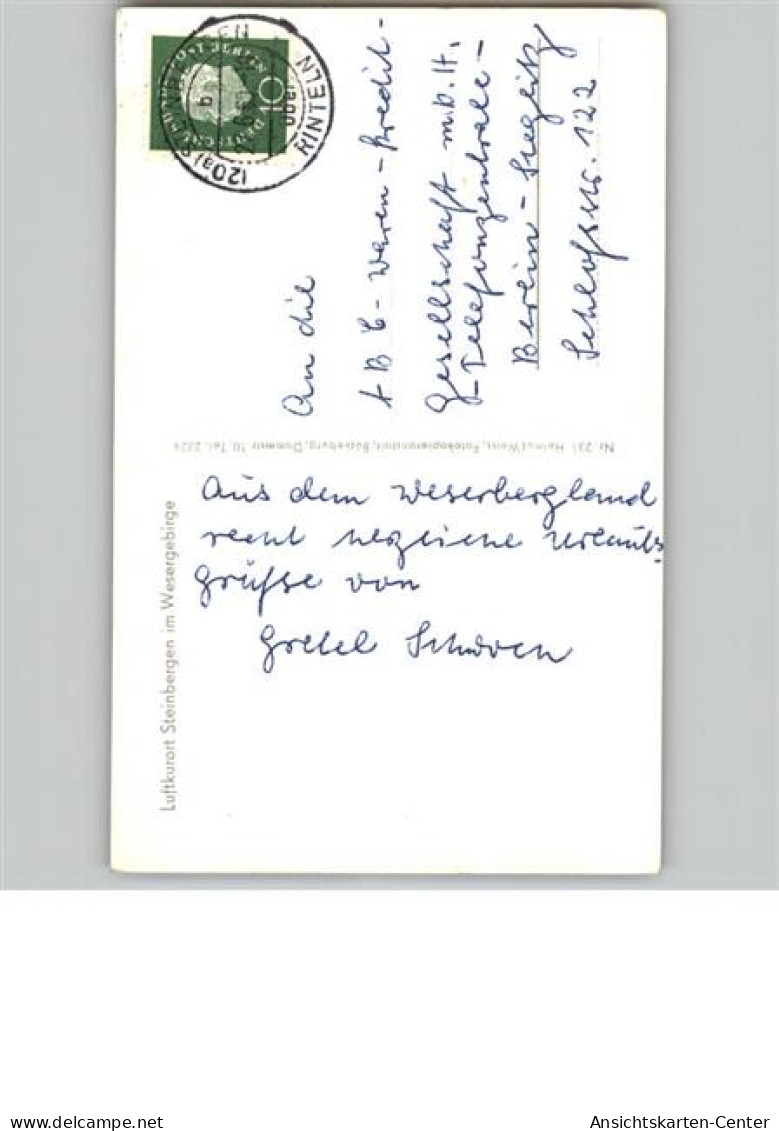 Luftkurort Steinbergen im Wesergebirge
Aus dem Weserbergland
recht herzliche Urlaubs-
grüße von
Gretel
Nr. 231 Helmut Weiss, Fotokopieranstalt, Bückeburg, Dammstr. 10, Tel. 2329
An die
ABC-Waren-Kredit-
Gesellschaft m.b.H.
-Telefonzentrale-
Berlin-Steglitz
Schloßstr. 122
(20a)
b
über
RINTELN
DEUTSCHE BUNDESPOST BERLIN
10
delcampe.net
Ansichtskarten-Center